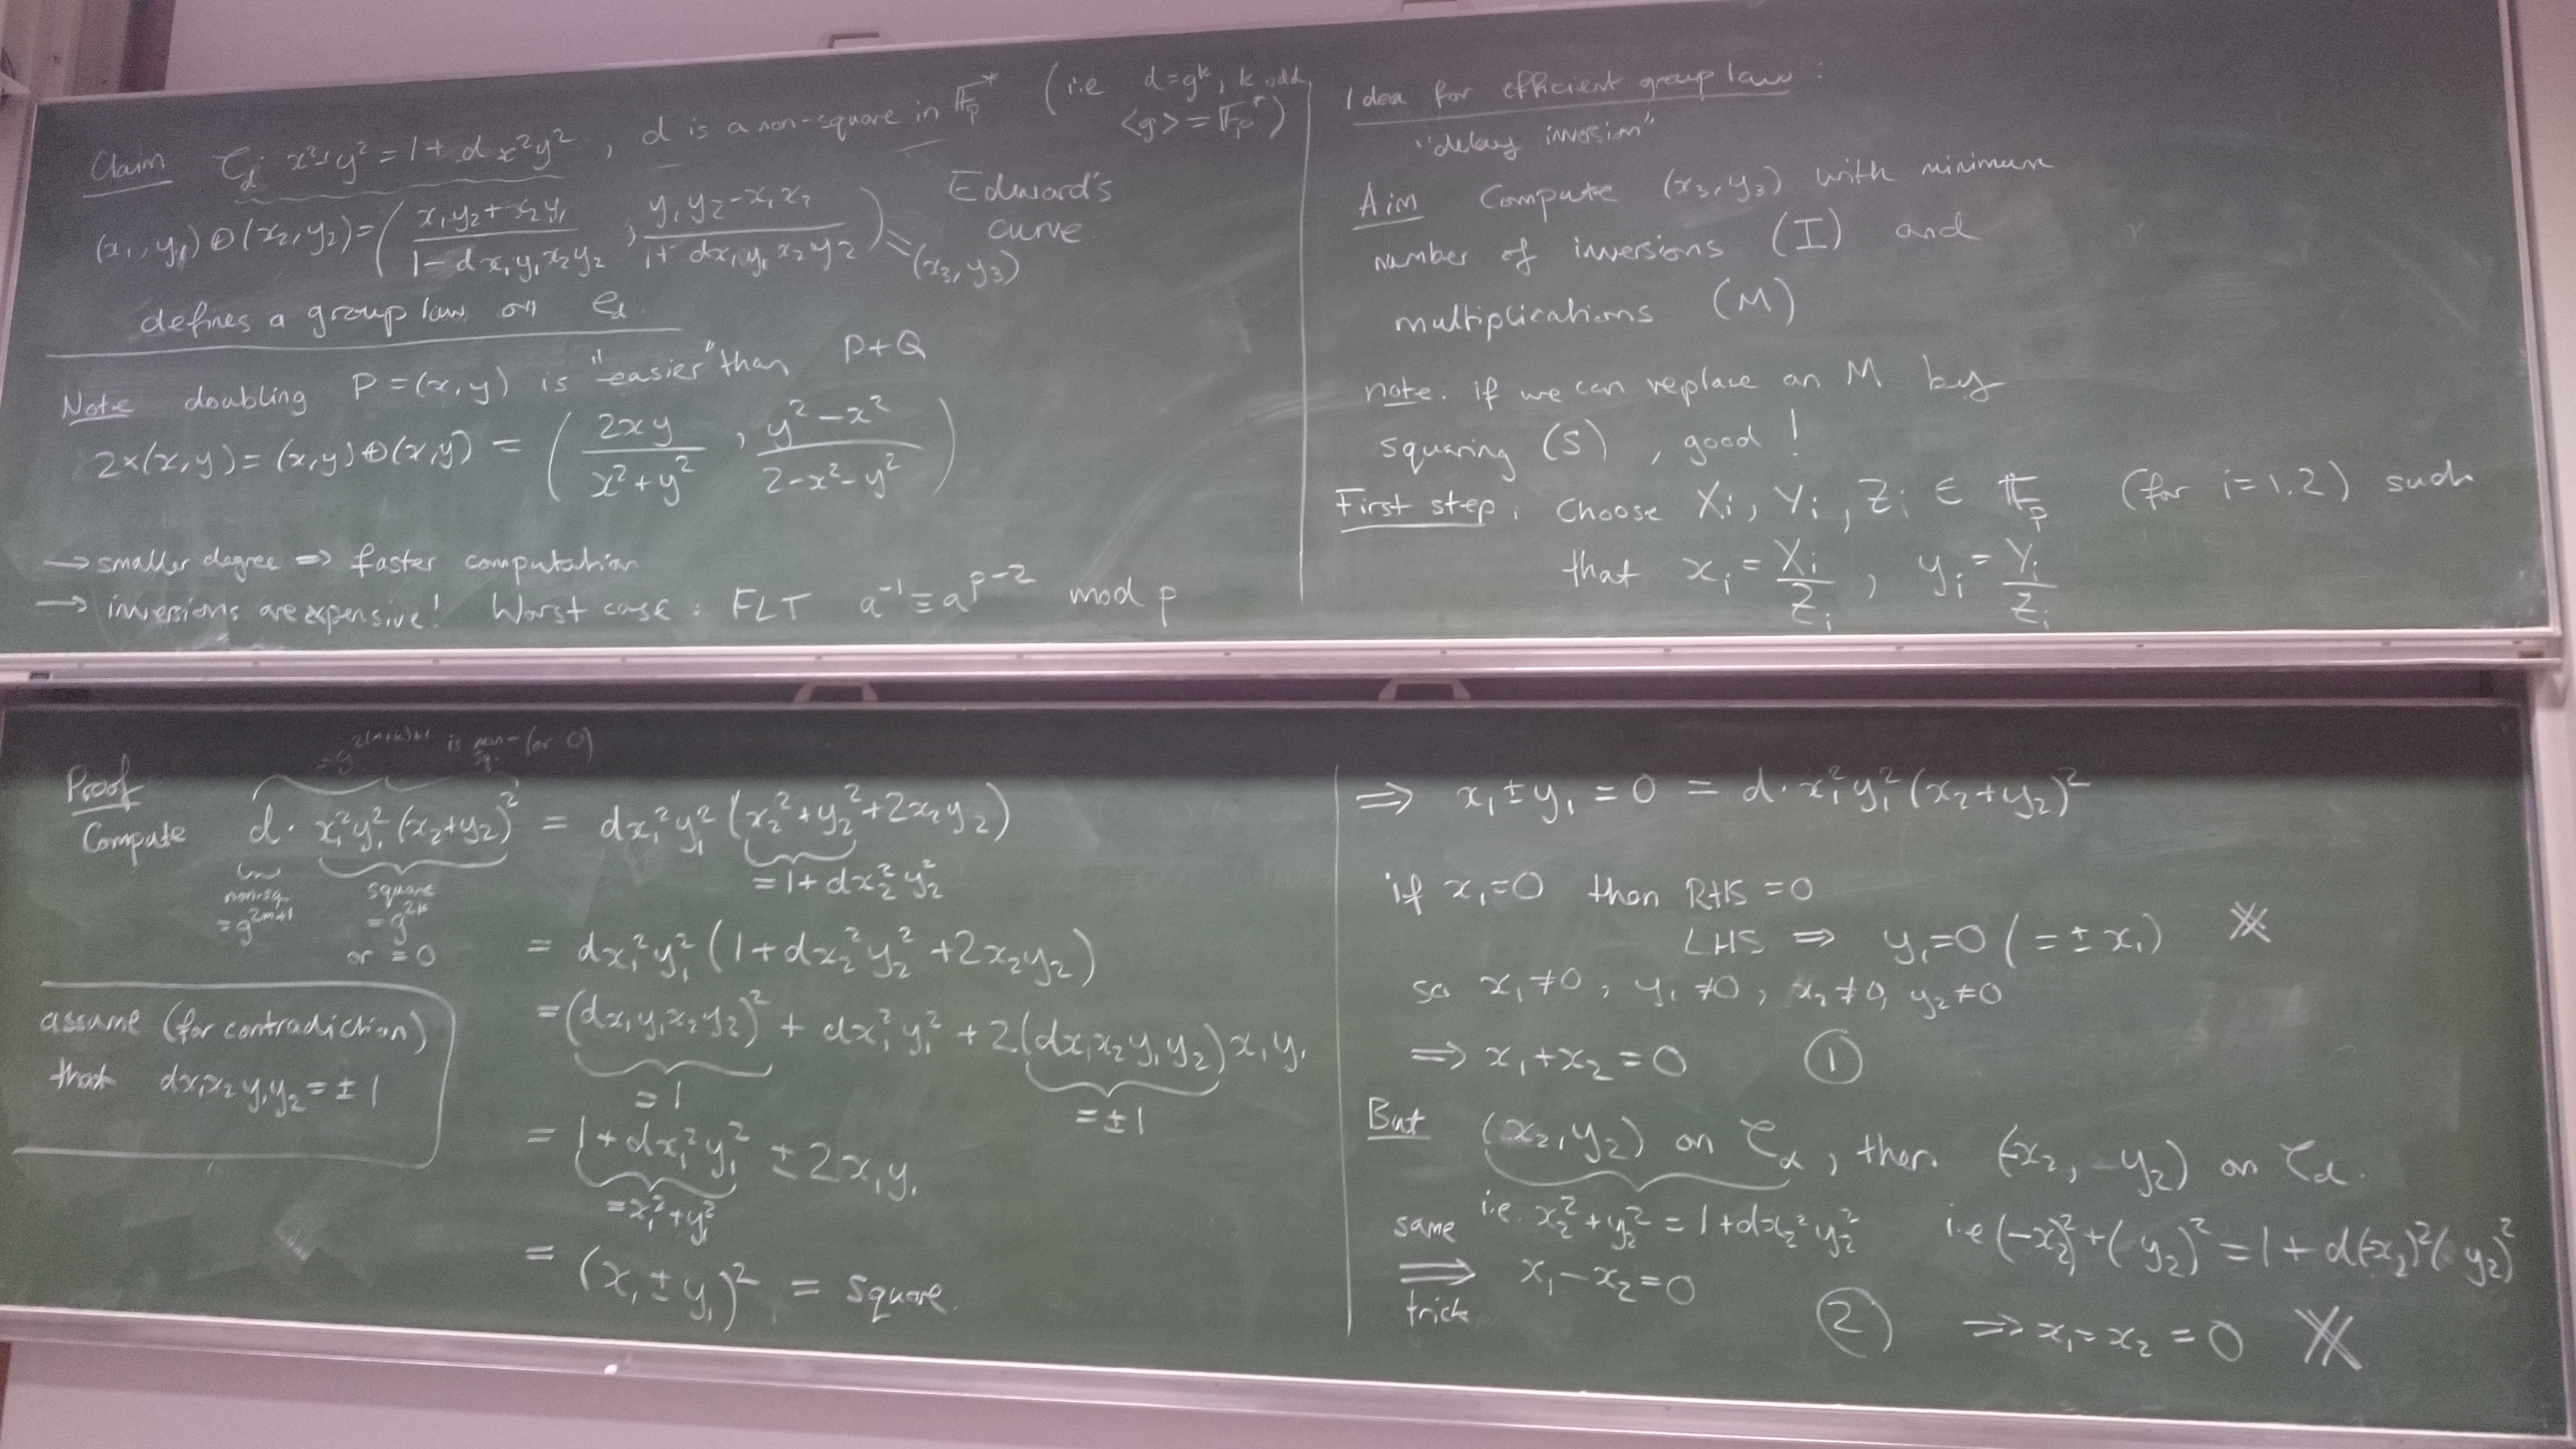 Claim C_d: x²+y² = 1+dx²y², d is a non-square in F_p^* (i.e. d=g^k, k odd, <g> = F_p^*)
(x₁,y₁)⊕(x₂,y₂) = ( (x₁y₂+x₂y₁)/(1-dx₁y₁x₂y₂) , (y₁y₂-x₁x₂)/(1+dx₁y₁x₂y₂) ) = (x₃,y₃)
Edward's
curve
defines a group law on C_d
Note doubling P=(x,y) is "easier" than P+Q
2×(x,y) = (x,y)⊕(x,y) = ( 2xy/(x²+y²) , (y²-x²)/(2-x²-y²) )
→ smaller degree ⇒ faster computation
→ inversions are expensive! Worst case: FLT a⁻¹ ≡ a^{p-2} mod p
Idea for efficient group law:
"delay inversion"
Aim Compute (x₃,y₃) with minimum
number of inversions (I) and
multiplications (M)
note. if we can replace an M by
squaring (S), good!
First step: Choose X_i, Y_i, Z_i ∈ F_p (for i=1,2) such
that x_i = X_i/Z_i , y_i = Y_i/Z_i
Proof
is non-sq. (or 0)
Compute d·x₁²y₁²(x₂+y₂)² = dx₁²y₁²(x₂²+y₂²+2x₂y₂)
= 1+dx₂²y₂²
non-sq.
= g^{2m+1}
square
= g^{2k}
or = 0
= dx₁²y₁²(1+dx₂²y₂²+2x₂y₂)
= (dx₁y₁x₂y₂)² + dx₁²y₁² + 2(dx₁x₂y₁y₂)x₁y₁
= 1
= ±1
= 1+dx₁²y₁² ± 2x₁y₁
= x₁²+y₁²
= (x₁±y₁)² = square.
assume (for contradiction)
that dx₁x₂y₁y₂ = ±1
⇒ x₁±y₁ = 0 = d·x₁²y₁²(x₂+y₂)²
if x₁=0 then RHS = 0
LHS ⇒ y₁=0 (= ±x₁) ※
so x₁≠0, y₁≠0, x₂≠0, y₂≠0
⇒ x₁+x₂=0 ①
But (x₂,y₂) on C_d, then (-x₂,-y₂) on C_d.
i.e. x₂²+y₂² = 1+dx₂²y₂² i.e (-x₂)²+(y₂)² = 1+d(-x₂)²(y₂)²
same
⇒ x₁-x₂=0
trick
② ⇒ x₁=x₂=0 ※